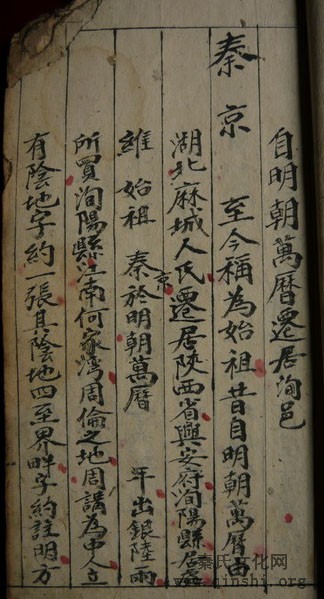 自明朝萬曆遷居洵邑
秦京 至今稱為始祖昔自明朝萬曆由
湖北麻城人氏遷居陝西省興安府洵陽縣居
維始祖 秦京於明朝萬曆 年出銀陸兩
所買洵陽縣江南何家灣周倫之地周講為中人立
有陰地字約一張其陰地四至界畔字約註明方
秦氏文化网
www.qinshi.org